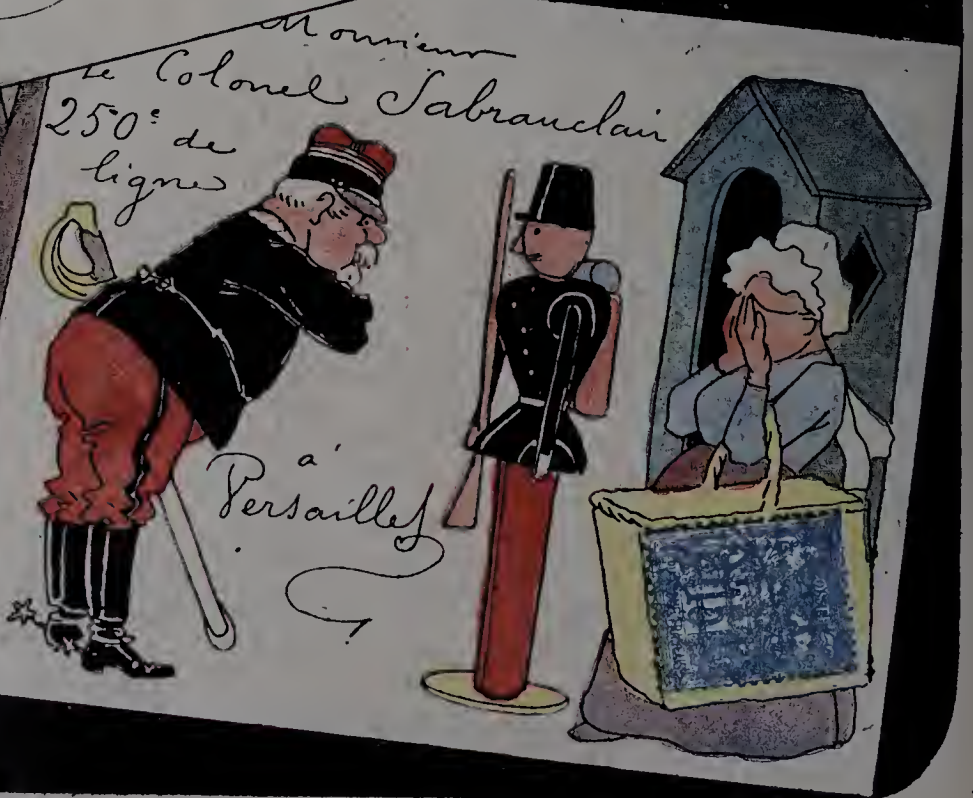 Monsieur
Le Colonel Sabrauclair
250e de
ligne
à
Versailles